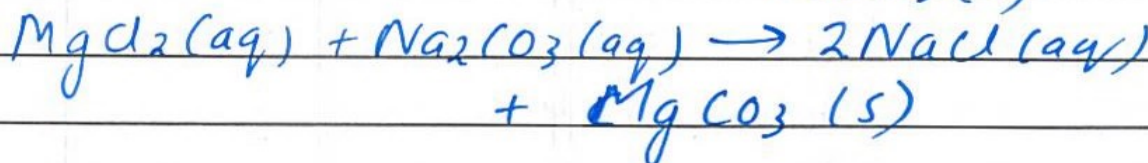 MgCl2 (aq) + Na2CO3 (aq) → 2NaCl (aq)
+ MgCO3 (s)